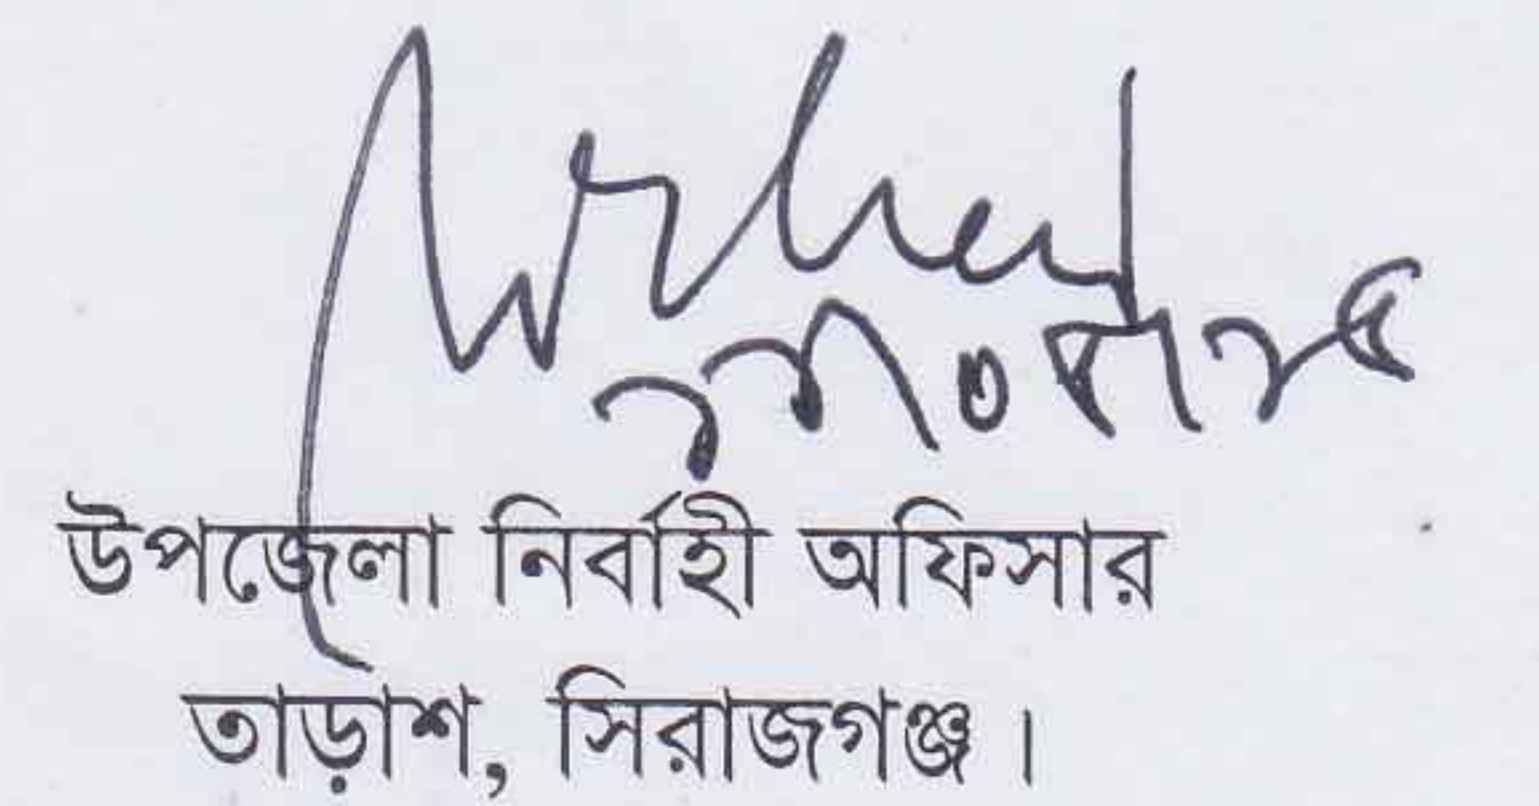 উপজেলা নির্বাহী অফিসার
তাড়াশ, সিরাজগঞ্জ।